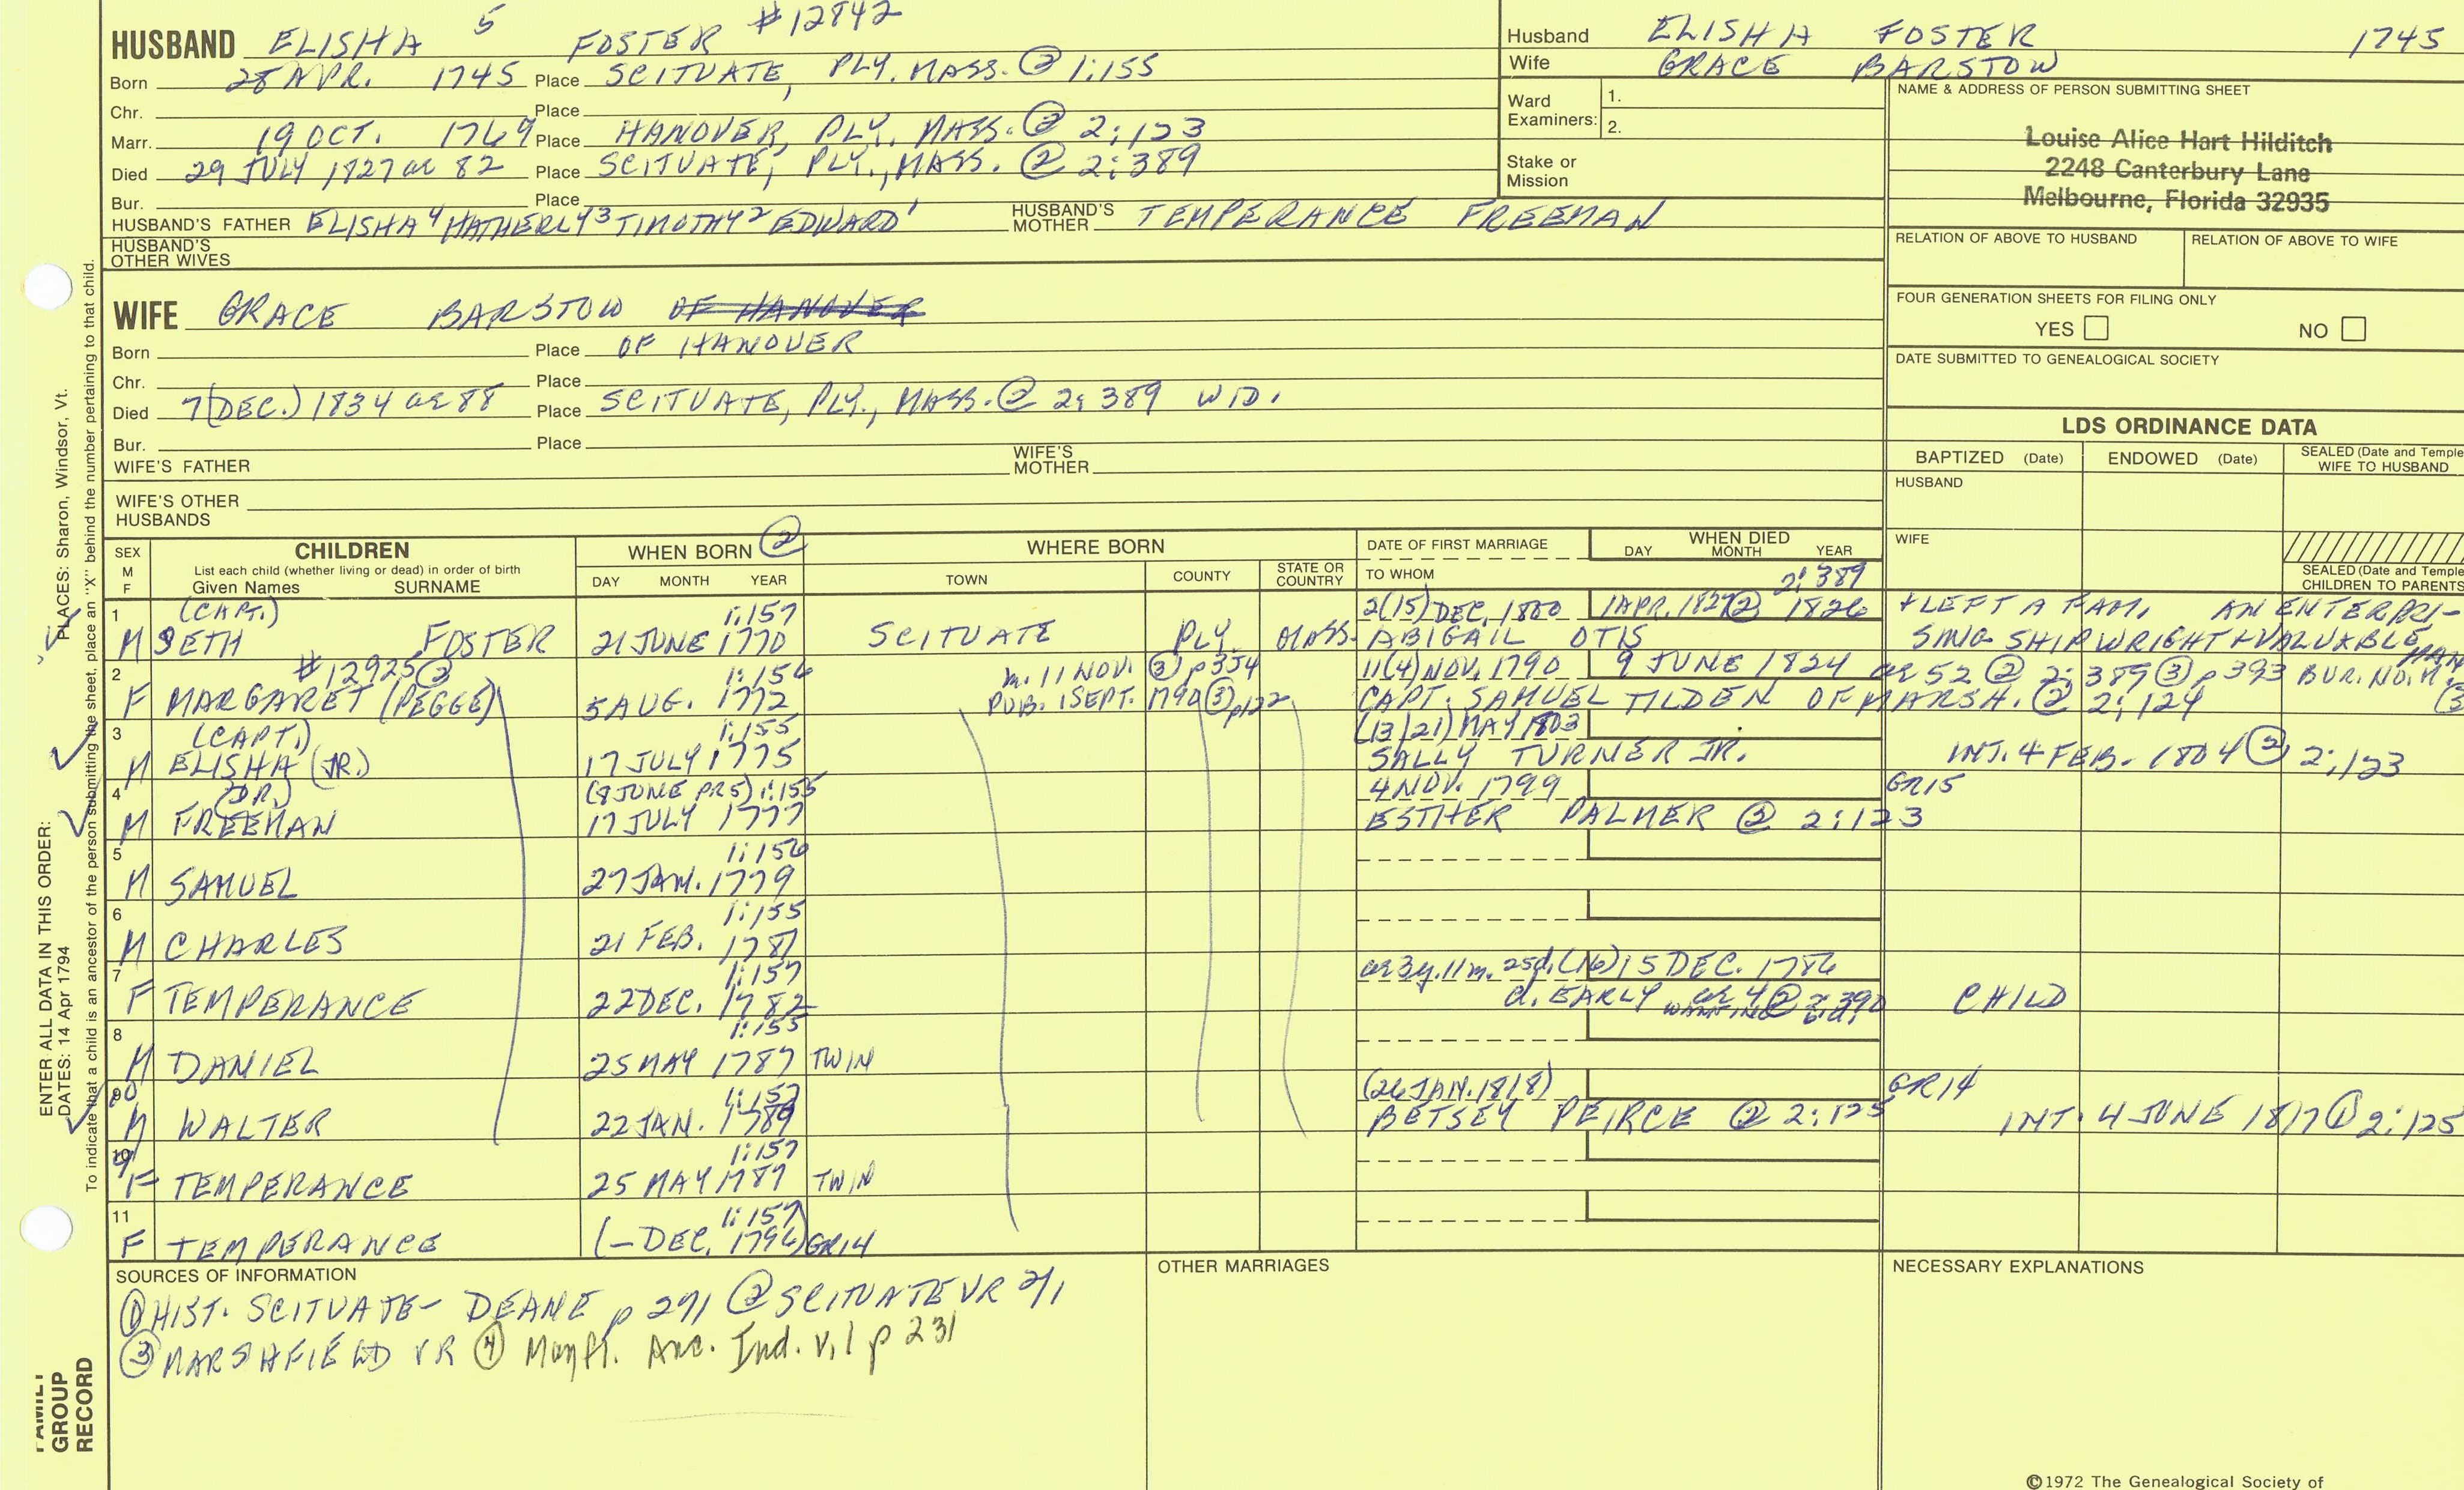 HUSBAND ELISHA 5 FOSTER #12842
Born 28 APR. 1745 Place SCITUATE, PLY. MASS. ② 1:155
Chr. Place
Marr. 19 OCT. 1769 Place HANOVER, PLY. MASS. ② 2:123
Died 29 JULY 1827 ae 82 Place SCITUATE, PLY., MASS. ② 2:389
Bur. Place
HUSBAND'S FATHER ELISHA 4 HATHERLY 3 TIMOTHY 2 EDWARD 1 HUSBAND'S MOTHER TEMPERANCE FREEMAN
HUSBAND'S OTHER WIVES
WIFE GRACE BARSTOW OF HANOVER
Born Place OF HANOVER
Chr. Place
Died 7(DEC.) 1834 ae 88 Place SCITUATE, PLY., MASS. ② 2:389 WID.
Bur. Place
WIFE'S FATHER WIFE'S MOTHER
WIFE'S OTHER HUSBANDS
Husband ELISHA FOSTER 1745
Wife GRACE BARSTOW
Ward Examiners: 1.
2.
Stake or Mission
NAME & ADDRESS OF PERSON SUBMITTING SHEET
Louise Alice Hart Hilditch
2248 Canterbury Lane
Melbourne, Florida 32935
RELATION OF ABOVE TO HUSBAND RELATION OF ABOVE TO WIFE
FOUR GENERATION SHEETS FOR FILING ONLY
YES NO
DATE SUBMITTED TO GENEALOGICAL SOCIETY
LDS ORDINANCE DATA
BAPTIZED (Date) ENDOWED (Date) SEALED (Date and Temple) WIFE TO HUSBAND
HUSBAND
WIFE
SEALED (Date and Temple) CHILDREN TO PARENTS
SEX M F CHILDREN WHEN BORN ② WHERE BORN DATE OF FIRST MARRIAGE WHEN DIED
List each child (whether living or dead) in order of birth
Given Names SURNAME DAY MONTH YEAR TOWN COUNTY STATE OR COUNTRY TO WHOM DAY MONTH YEAR
2:389
1 (CAPT.) 1:157 2(15) DEC. 1800 1 APR. 1827② 1826 + LEFT A FAM. AN ENTERPRI-
M SETH FOSTER 21 JUNE 1770 SCITUATE PLY. MASS. ABIGAIL OTIS SING SHIPWRIGHT + VALUABLE MAN
2 #12925② 1:156 m. 11 NOV. ③ p354 11(4) NOV. 1790 9 JUNE 1824 ae 52 ② 2:389 ③ p393 BUR. NO. M.
F MARGARET (PEGGE) 5 AUG. 1772 PUB. 1 SEPT. 1790 ③ p122 CAPT. SAMUEL TILDEN OF MARSH. ② 2:124
3 (CAPT.) 1:155 (13/21) MAY 1803
M ELISHA (JR.) 17 JULY 1775 SALLY TURNER JR. INT. 4 FEB. 1804 ② 2:123
4 (DR.) (8 JUNE PR5) 1:155 4 NOV. 1799 GR15
M FREEMAN 17 JULY 1777 ESTHER PALMER ② 2:123
5 1:156
M SAMUEL 27 JAN. 1779
6 1:155
M CHARLES 21 FEB. 1781
7 1:157 ae 3y. 11m. 25d. (16) 15 DEC. 1786
F TEMPERANCE 22 DEC. 1782 d. EARLY ae 4 ② 2:390 CHILD
8 1:155
M DANIEL 25 MAY 1787 TWIN
10 1:157 (26 JAN. 1818) GR14
M WALTER 22 JAN. 1789 BETSEY PEIRCE ② 2:125 INT. 4 JUNE 1817 ② 2:125
9 1:157
F TEMPERANCE 25 MAY 1787 TWIN
11 1:157
F TEMPERANCE (– DEC. 1794) GR14
SOURCES OF INFORMATION
① HIST. SCITUATE – DEANE p 271 ② SCITUATE VR 2/1
③ MARSHFIELD VR ④ Mayfl. Anc. Ind. v.1 p 231
OTHER MARRIAGES
NECESSARY EXPLANATIONS
©1972 The Genealogical Society of
ENTER ALL DATA IN THIS ORDER:
DATES: 14 Apr 1794
PLACES: Sharon, Windsor, Vt.
To indicate that a child is an ancestor of the person submitting the sheet, place an "X" behind the number pertaining to that child.
FAMILY GROUP RECORD